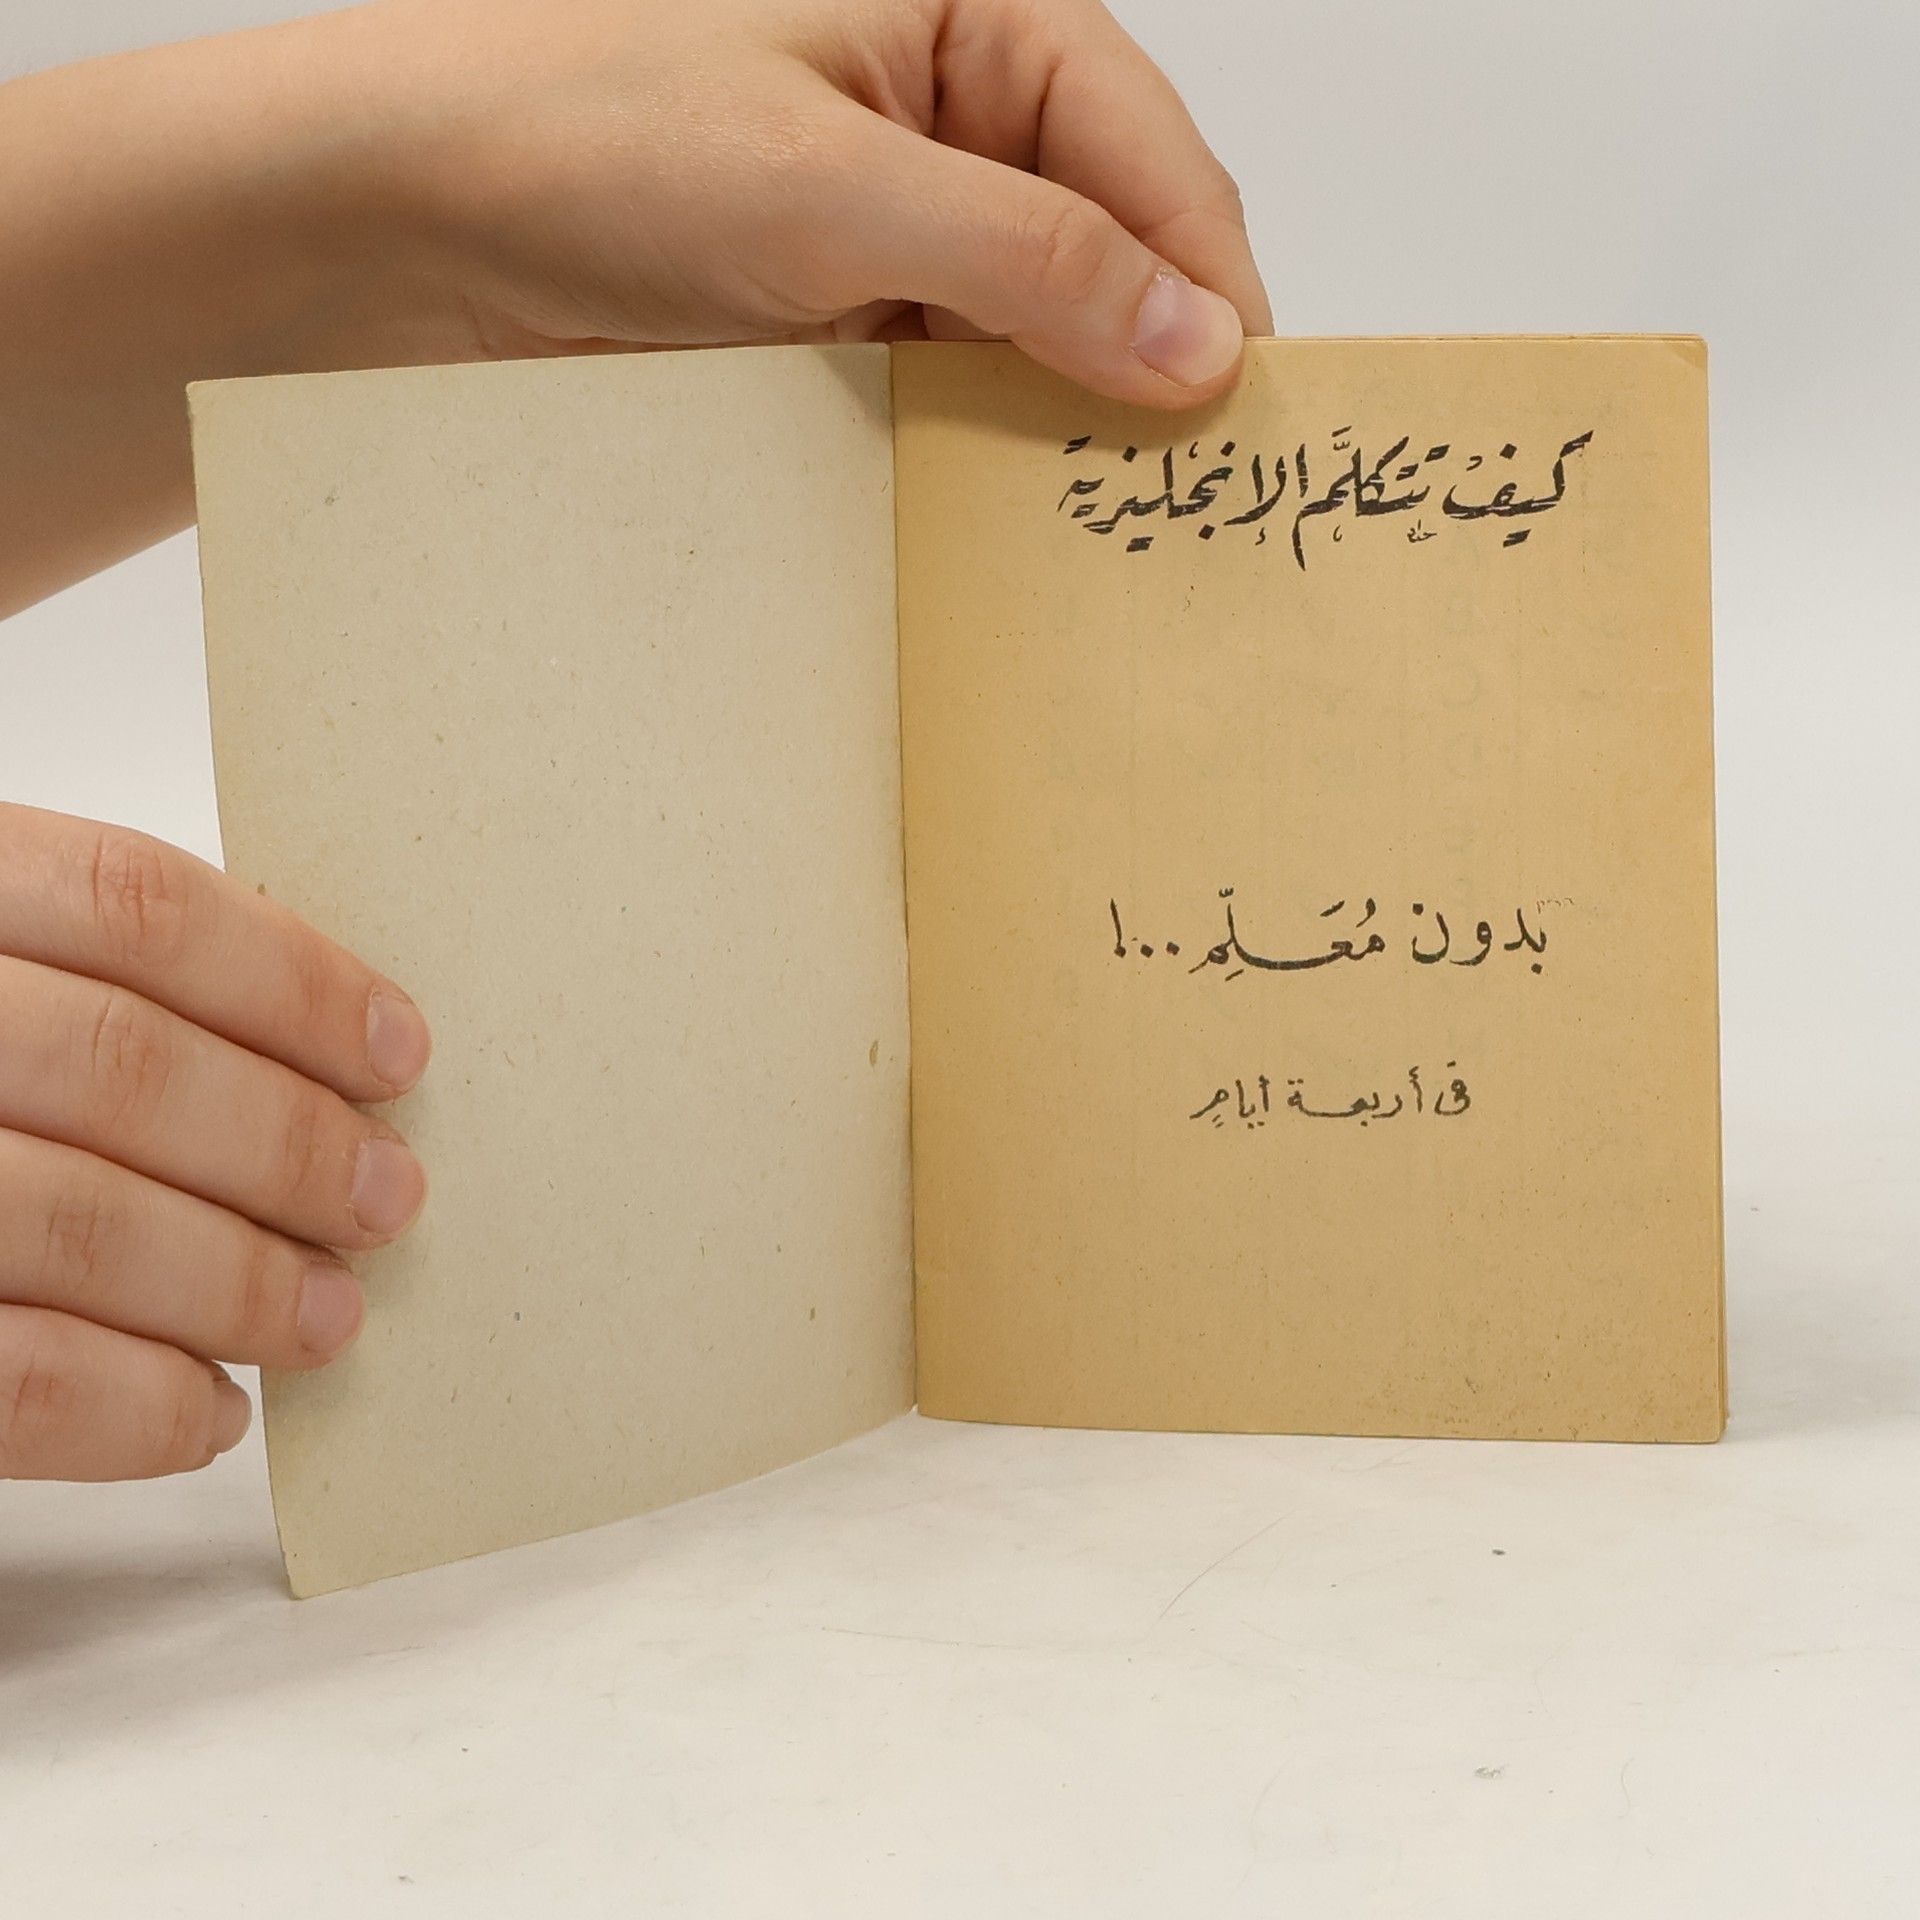 كيفْ تتكلَّم الإنجليزية
بدون مُعَلِّمِ ..!
فى أربعة أيامٍ